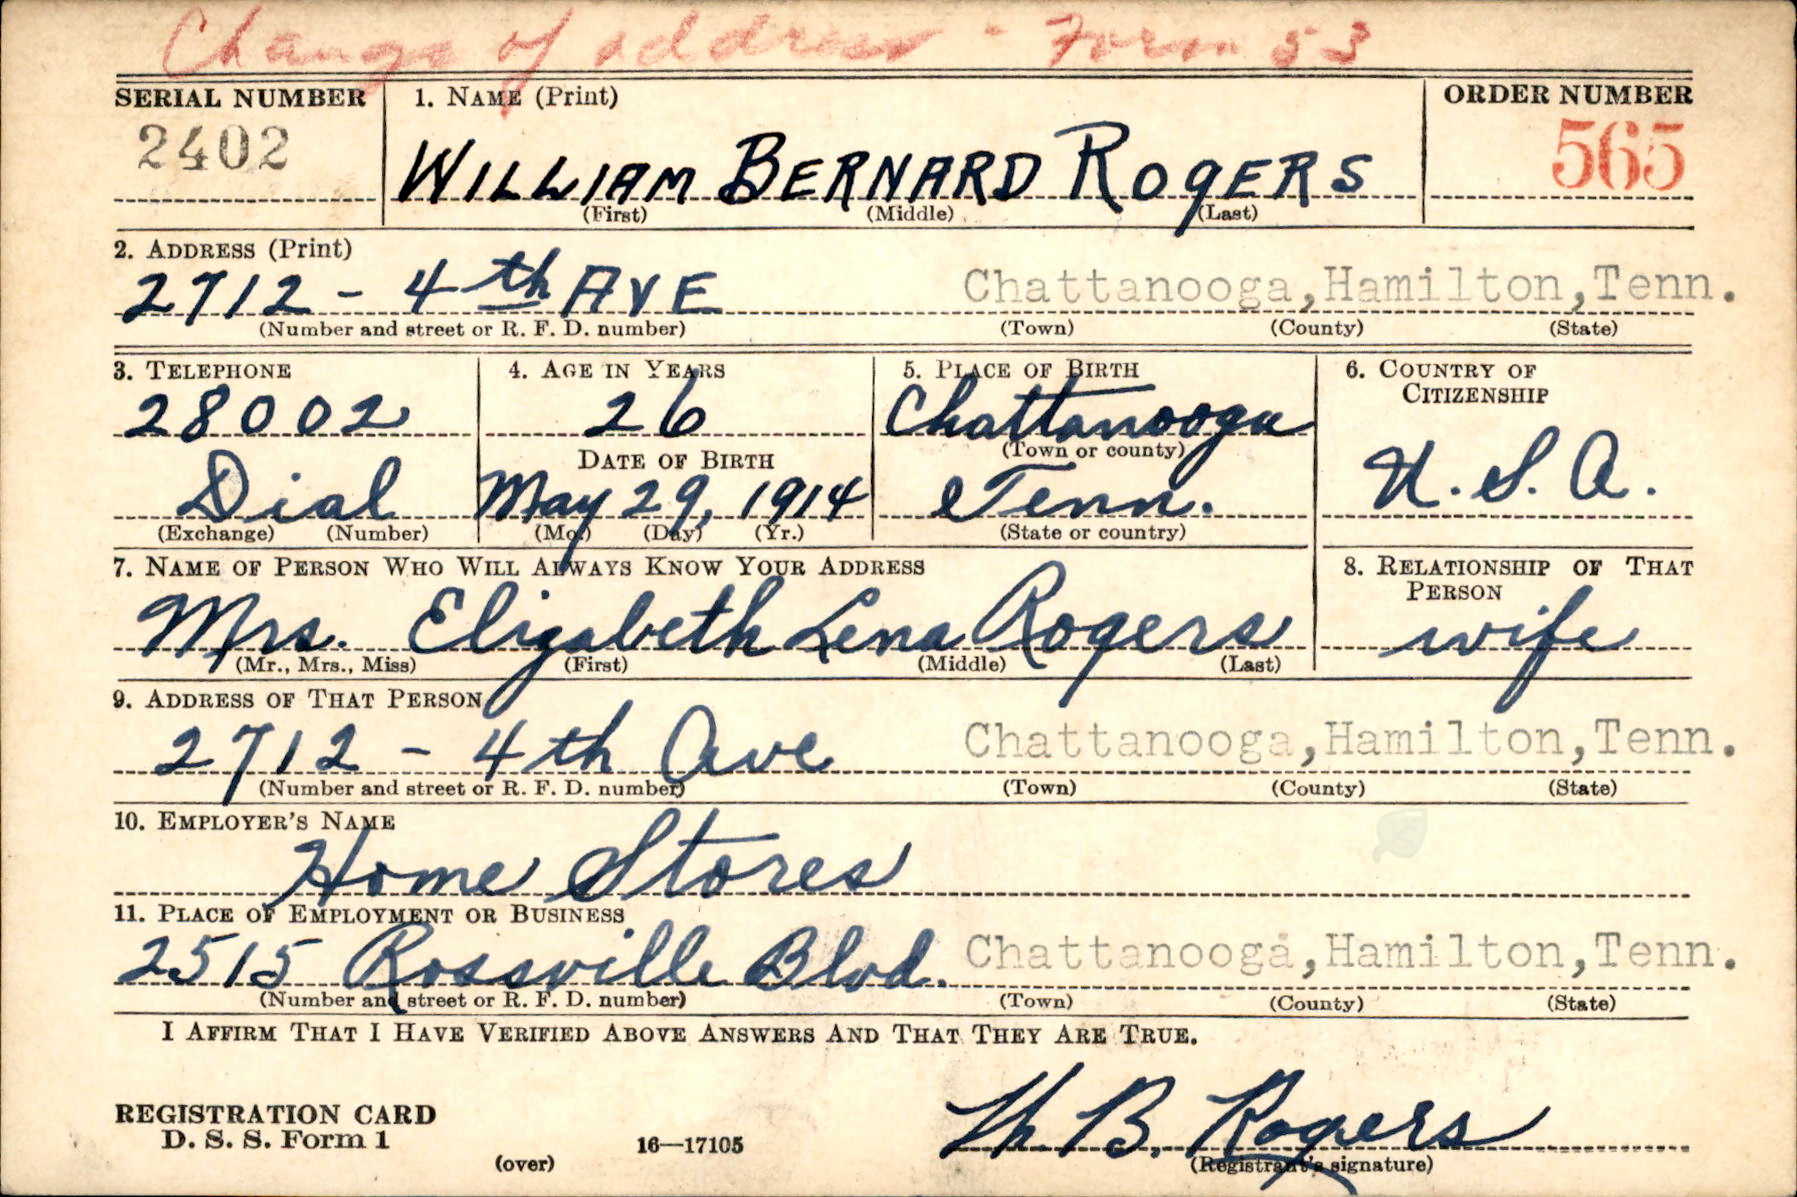 Change of address - Form 53
SERIAL NUMBER 1. NAME (Print) ORDER NUMBER
2402 WILLIAM BERNARD ROGERS 565
(First) (Middle) (Last)
2. ADDRESS (Print)
2712 - 4th AVE Chattanooga, Hamilton, Tenn.
(Number and street or R. F. D. number) (Town) (County) (State)
3. TELEPHONE 4. AGE IN YEARS 5. PLACE OF BIRTH 6. COUNTRY OF
CITIZENSHIP
28002 26 Chattanooga
DATE OF BIRTH (Town or county)
Dial May 29, 1914 Tenn. U. S. A.
(Exchange) (Number) (Mo.) (Day) (Yr.) (State or country)
7. NAME OF PERSON WHO WILL ALWAYS KNOW YOUR ADDRESS 8. RELATIONSHIP OF THAT
PERSON
Mrs. Elizabeth Lena Rogers wife
(Mr., Mrs., Miss) (First) (Middle) (Last)
9. ADDRESS OF THAT PERSON
2712 - 4th Ave Chattanooga, Hamilton, Tenn.
(Number and street or R. F. D. number) (Town) (County) (State)
10. EMPLOYER'S NAME
Home Stores
11. PLACE OF EMPLOYMENT OR BUSINESS
2515 Rossville Blvd. Chattanooga, Hamilton, Tenn.
(Number and street or R. F. D. number) (Town) (County) (State)
I AFFIRM THAT I HAVE VERIFIED ABOVE ANSWERS AND THAT THEY ARE TRUE.
REGISTRATION CARD
D. S. S. Form 1 16—17105 W. B. Rogers
(over) (Registrant's signature)